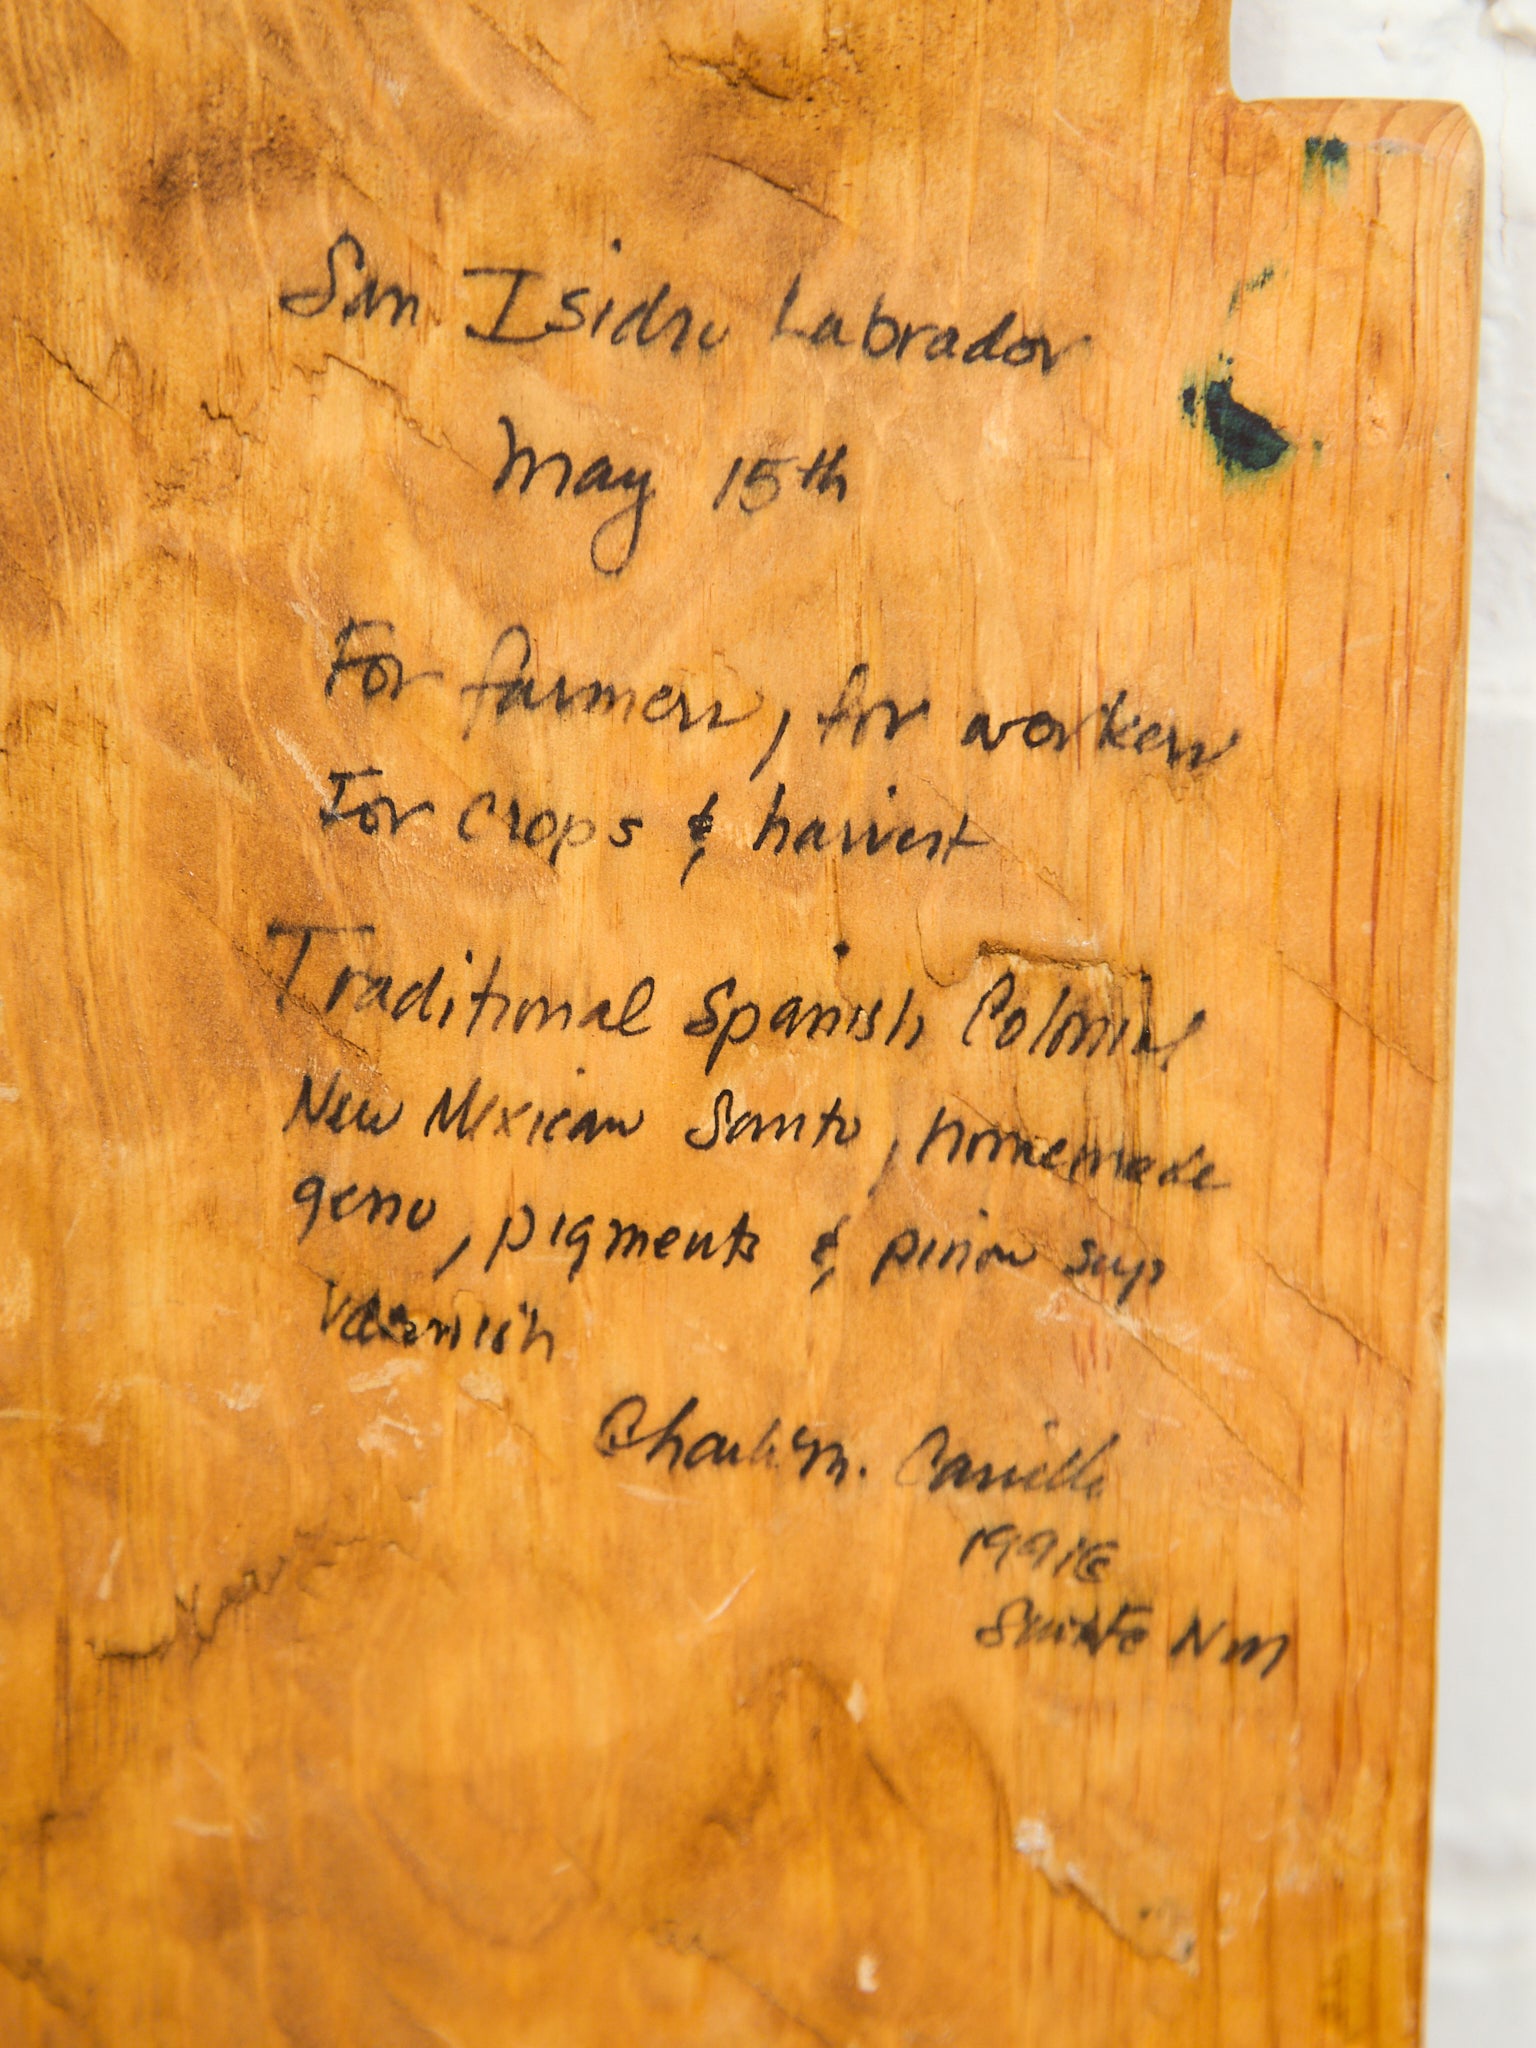 San Isidro Labrador
May 15th
For farmers, for workers
For crops & harvest
Traditional Spanish Colonial
New Mexican Santo, homemade
gesso, pigments & pinion sap
Varnish
Charlie M. Carrillo
Santa Fe NM